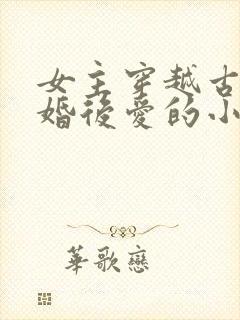 女主穿越古
婚後愛的小
華歌戀